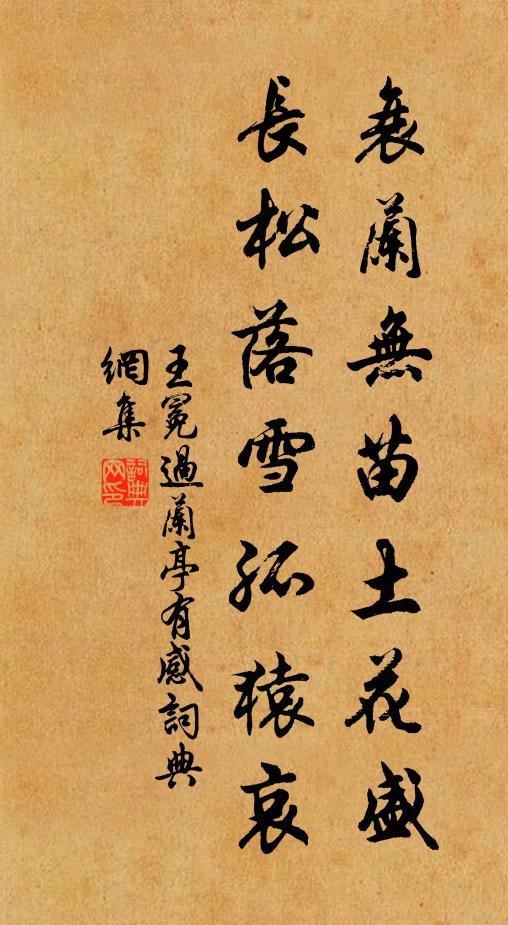 衰蘭無苗土花盛
長松落雪孤猿哀
王冕過蘭亭有感詞典
網集
詞典
网印